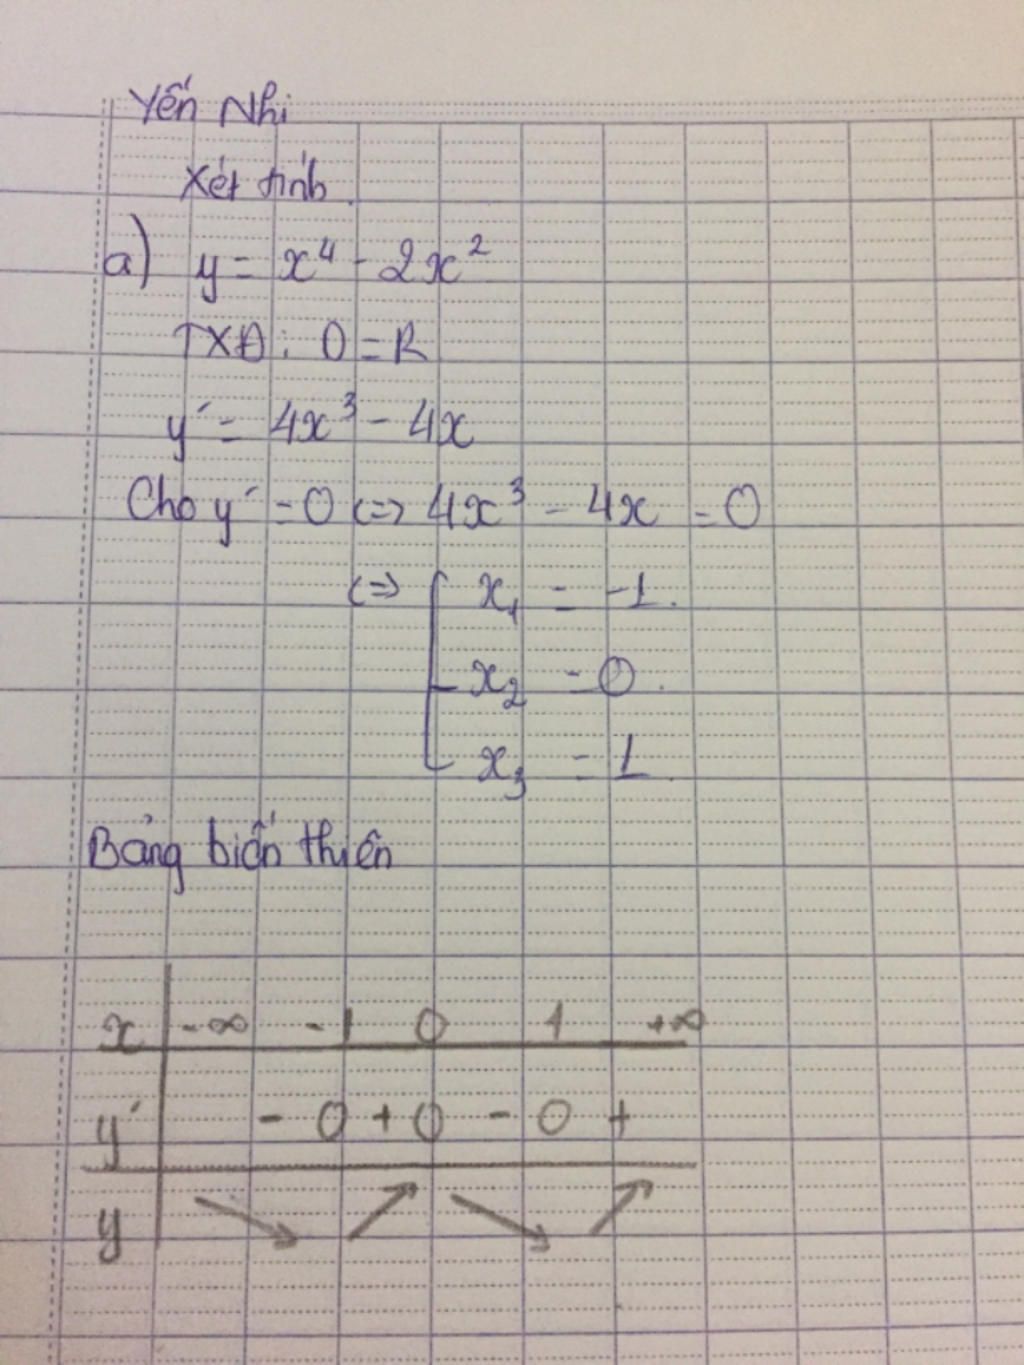 Yến Nhi
Xét tính
a) y = x⁴ - 2x²
TXĐ: D = R
y' = 4x³ - 4x
Cho y' = 0 <=> 4x³ - 4x = 0
<=> [ x₁ = -1.
x₂ = 0.
x₃ = 1.
Bảng biến thiên
x | -∞ -1 0 1 +∞
y' | - 0 + 0 - 0 +
y | ↘ ↗ ↘ ↗